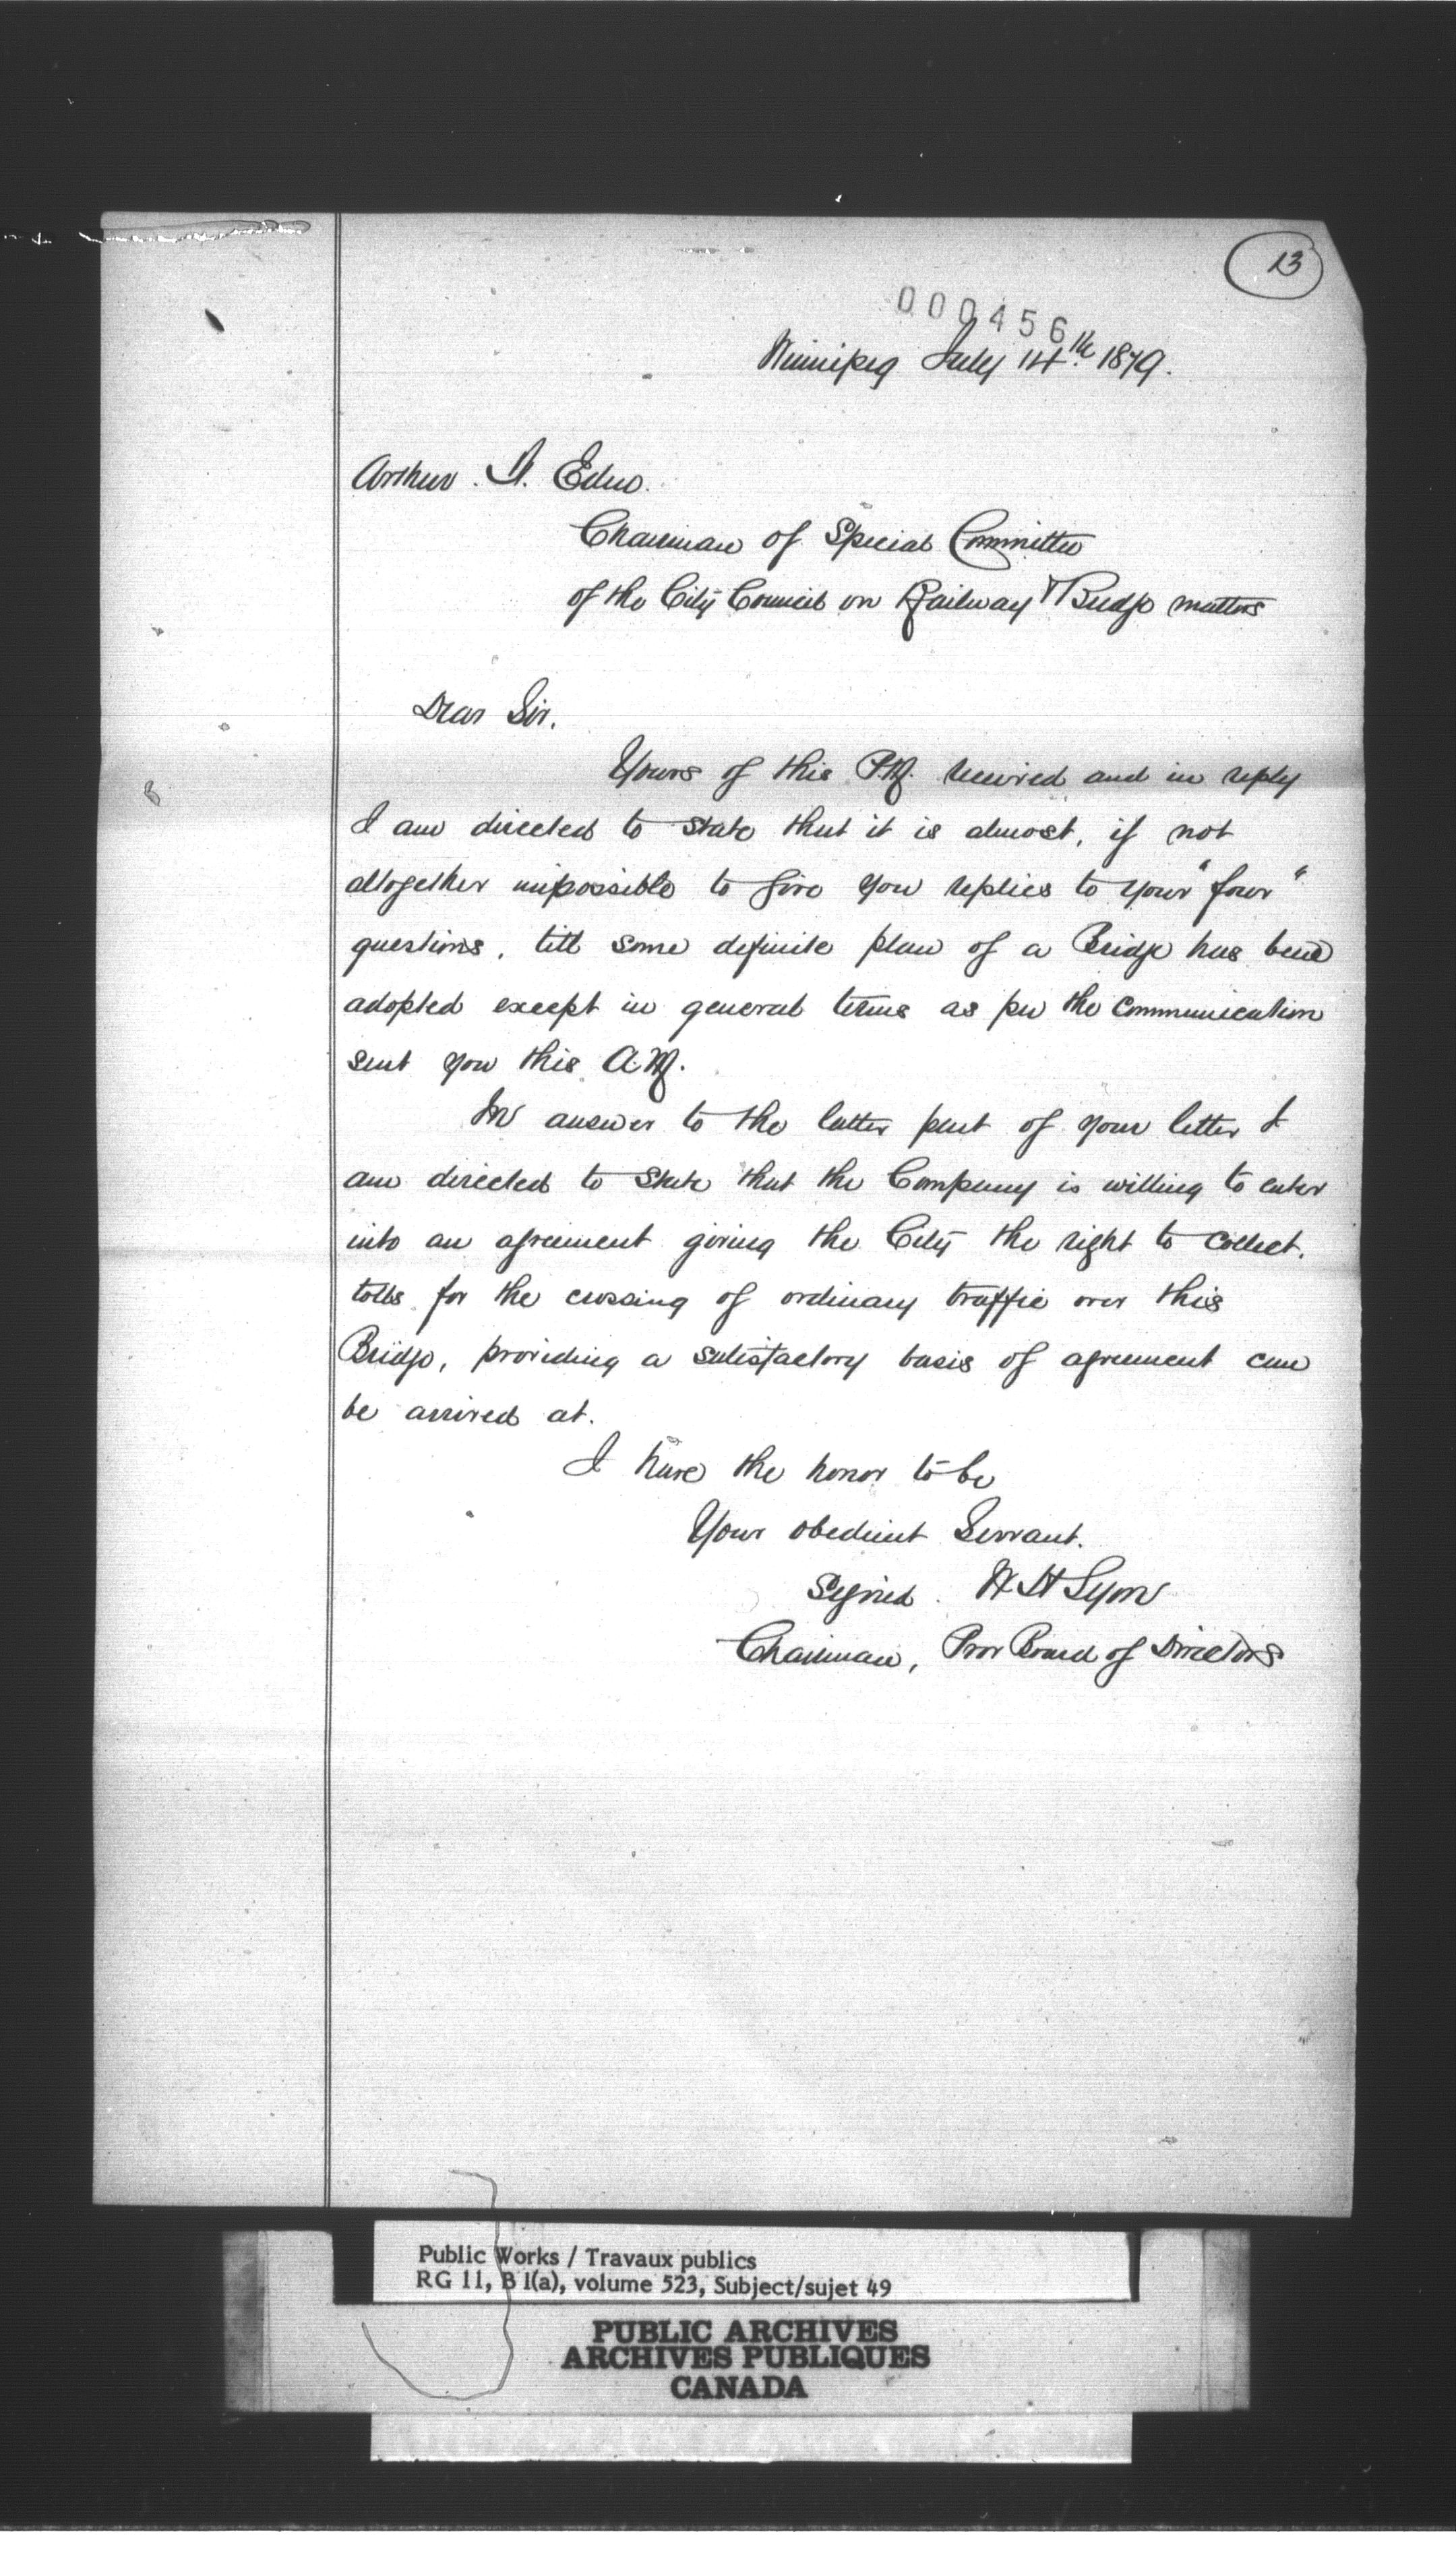 13
000456
Winnipeg July 14th 1879.
Arthur. F. Eden.
Chairman of Special Committee
of the City Council on Railway & Bridge matters
Dear Sir,
Yours of this P.M. received and in reply
I am directed to state that it is almost, if not
altogether impossible to give you replies to your "four"
questions, till some definite plan of a Bridge has been
adopted except in general terms as per the communication
sent you this A.M.
In answer to the latter part of your letter I
am directed to state that the Company is willing to enter
into an agreement giving the City the right to collect.
tolls for the crossing of ordinary traffic over this
Bridge, providing a satisfactory basis of agreement can
be arrived at.
I have the honor to be
Your obedient Servant.
Signed. W H Lyon
Chairman, Prov Board of Directors
Public Works / Travaux publics
RG 11, B 1(a), volume 523, Subject/sujet 49
PUBLIC ARCHIVES
ARCHIVES PUBLIQUES
CANADA